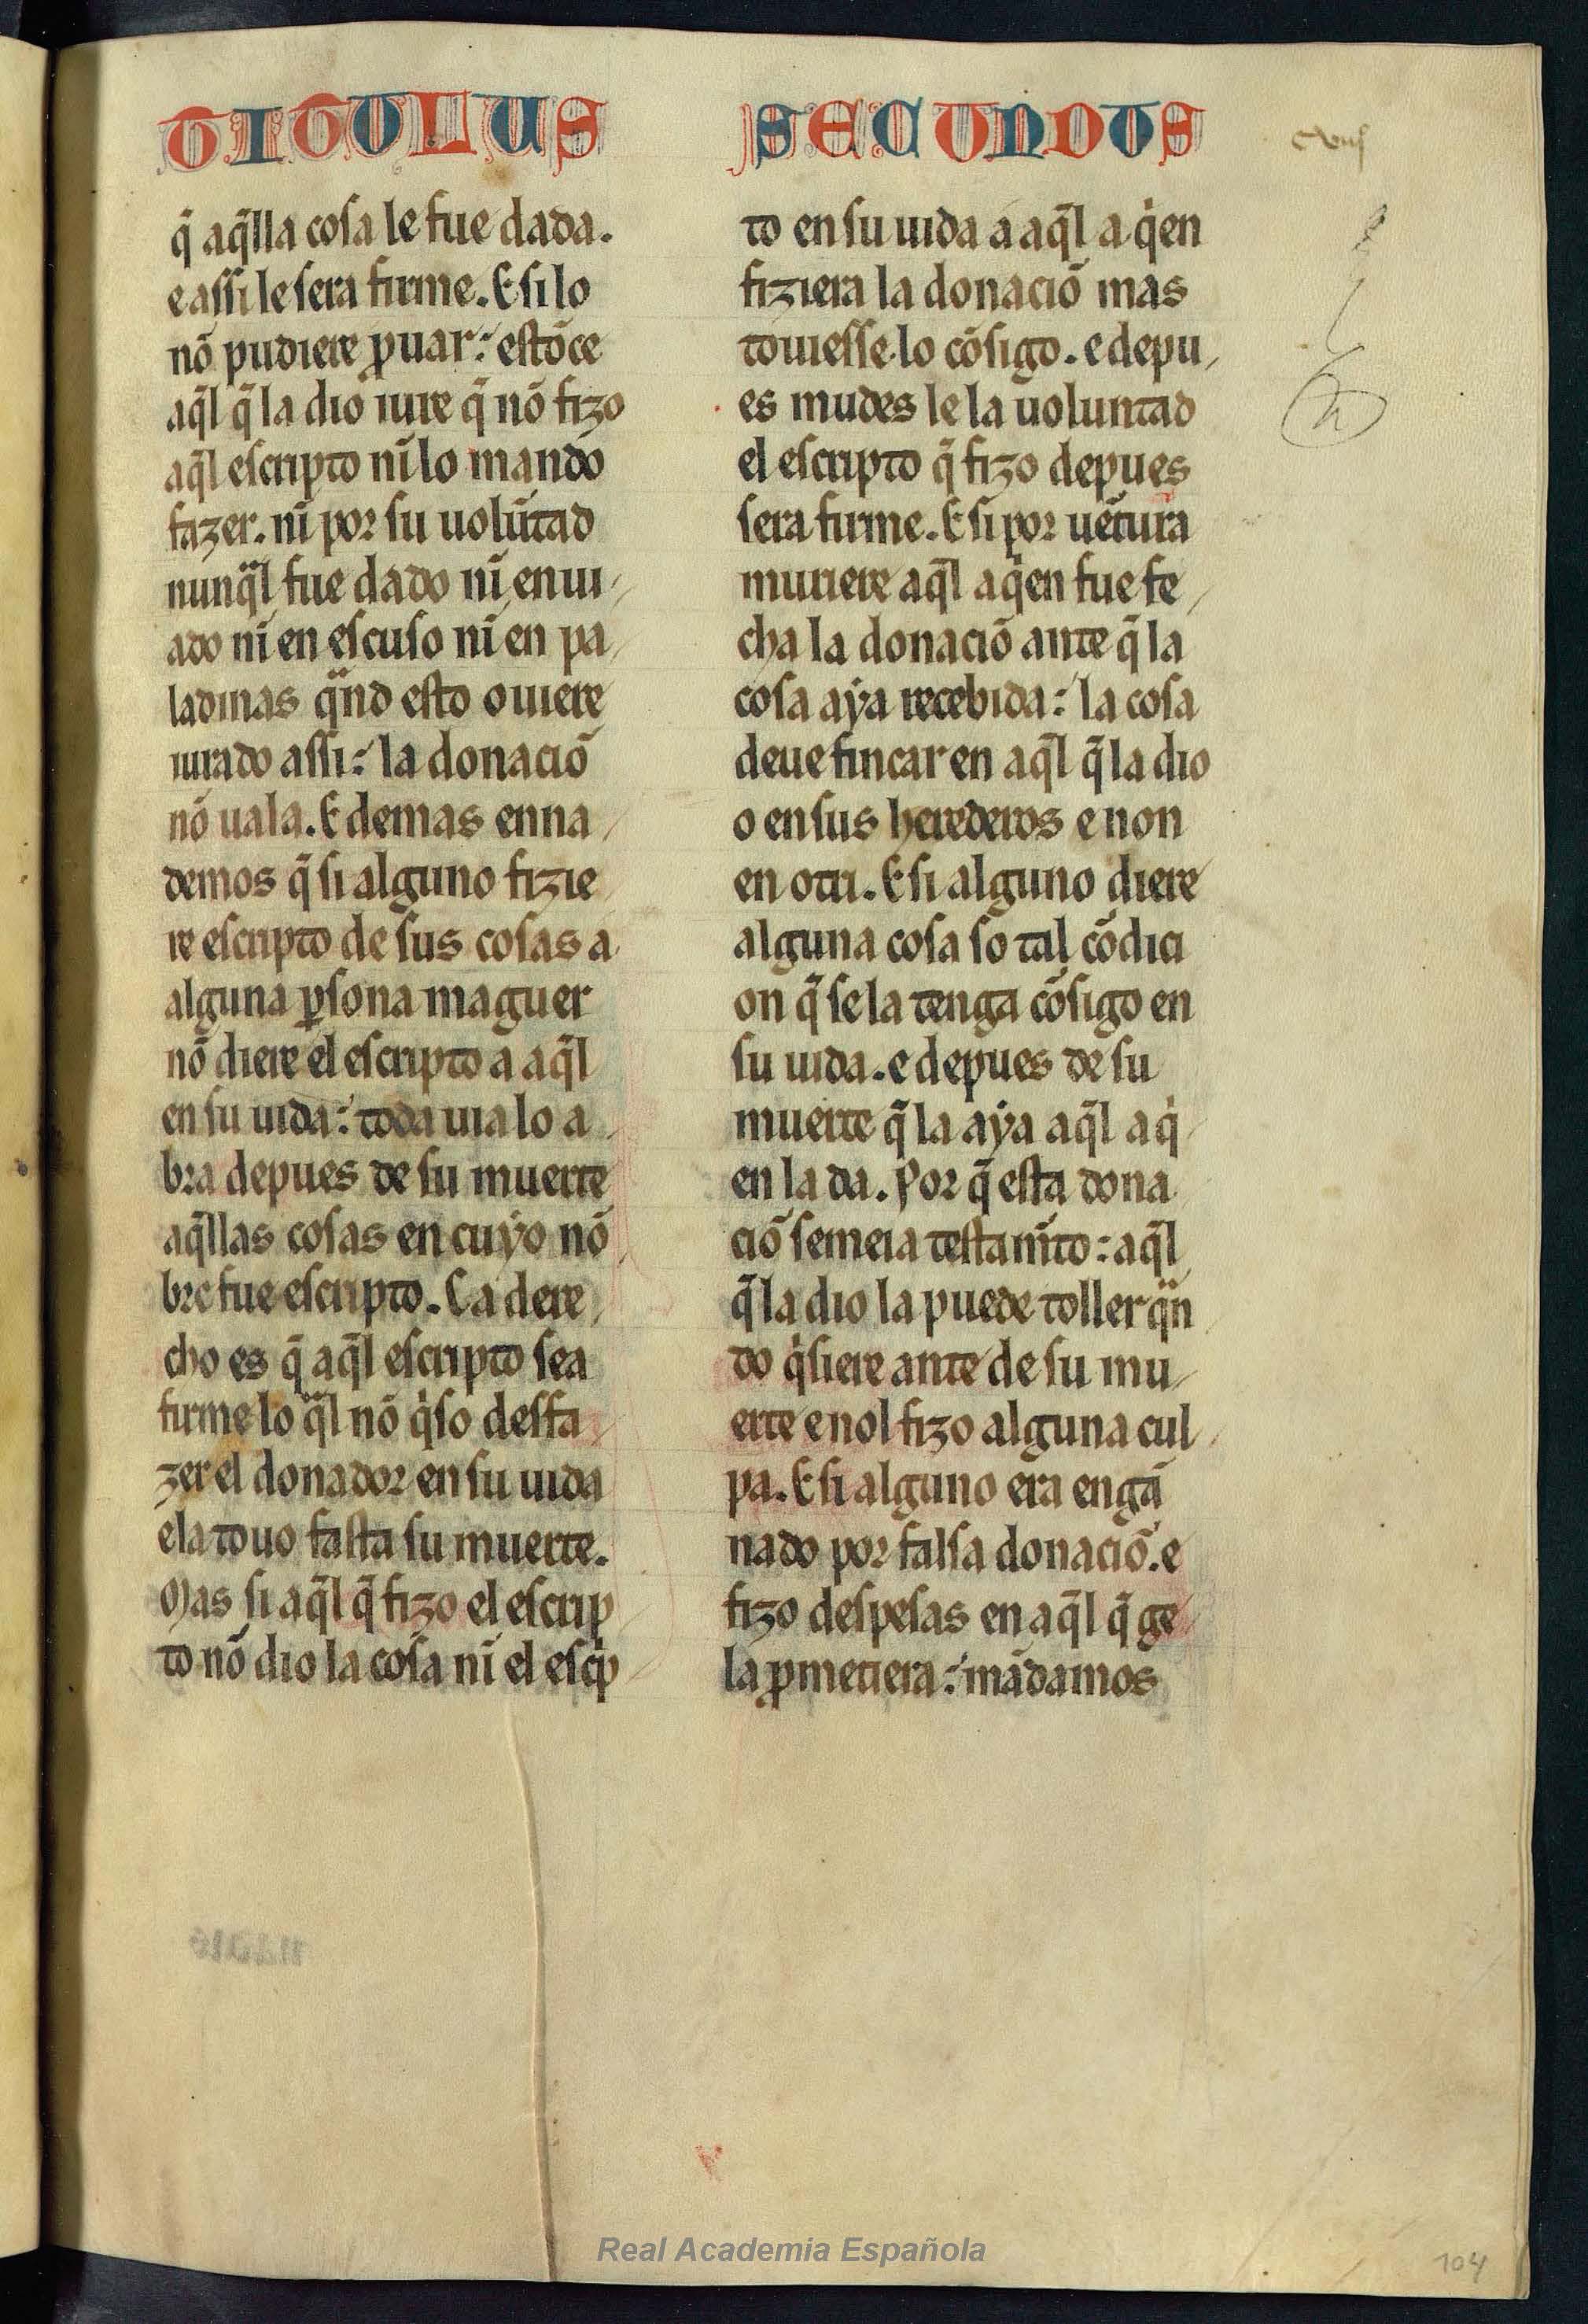 TITULUS SECUNDUS
q̃ aq̃lla cosa le fue dada.
e assi le sera firme. E si lo
nõ pudiere ꝓuar: estõce
aq̃l q̃ la dio iure q̃ nõ fizo
aq̃l escripto nĩ lo mando
fazer. nĩ por su uolũtad
nunqᵃl fue dado nĩ en ui
ado nĩ en escuso nĩ en pa
ladinas qᵃnd esto ouiere
iurado assi: la donaciõ
nõ uala. E demas enna
demos q̃ si alguno fizie
re escripto de sus cosas a
alguna ꝑsona maguer
nõ diere el escripto a aq̃l
en su uida: toda uia lo a
bra depues de su muerte
aq̃llas cosas en cuyo nõ
bre fue escripto. Ca dere
cho es q̃ aq̃l escripto sea
firme lo qᵃl nõ qⁱso desfa
zer el donador en su uida
e la touo fasta su muerte.
Mas si aq̃l q̃ fizo el escrip
to nõ dio la cosa nĩ el escⁱp
to en su uida a aq̃l a qⁱen
fiziera la donaciõ mas
touiesse lo cõsigo. e depu
es mudes le la uoluntad
el escripto q̃ fizo depues
sera firme. E si por uẽtura
muriere aq̃l a qⁱen fue fe
cha la donaciõ ante q̃ la
cosa aya recebida: la cosa
deue fincar en aq̃l q̃ la dio
o en sus herederos e non
en otri. E si alguno diere
alguna cosa so tal cõdici
on q̃ se la tenga cõsigo en
su uida. e depues de su
muerte q̃ la aya aq̃l a qⁱ
en la da. Por q̃ esta dona
ciõ semeia testam̃to: aq̃l
q̃ la dio la puede toller qᵃn
do qⁱsiere ante de su mu
erte e nol fizo alguna cul
pa. E si alguno era enga
nado por falsa donaciõ. e
fizo despesas en aq̃l q̃ ge
la ꝓmetiera: mãdamos
Real Academia Española
104